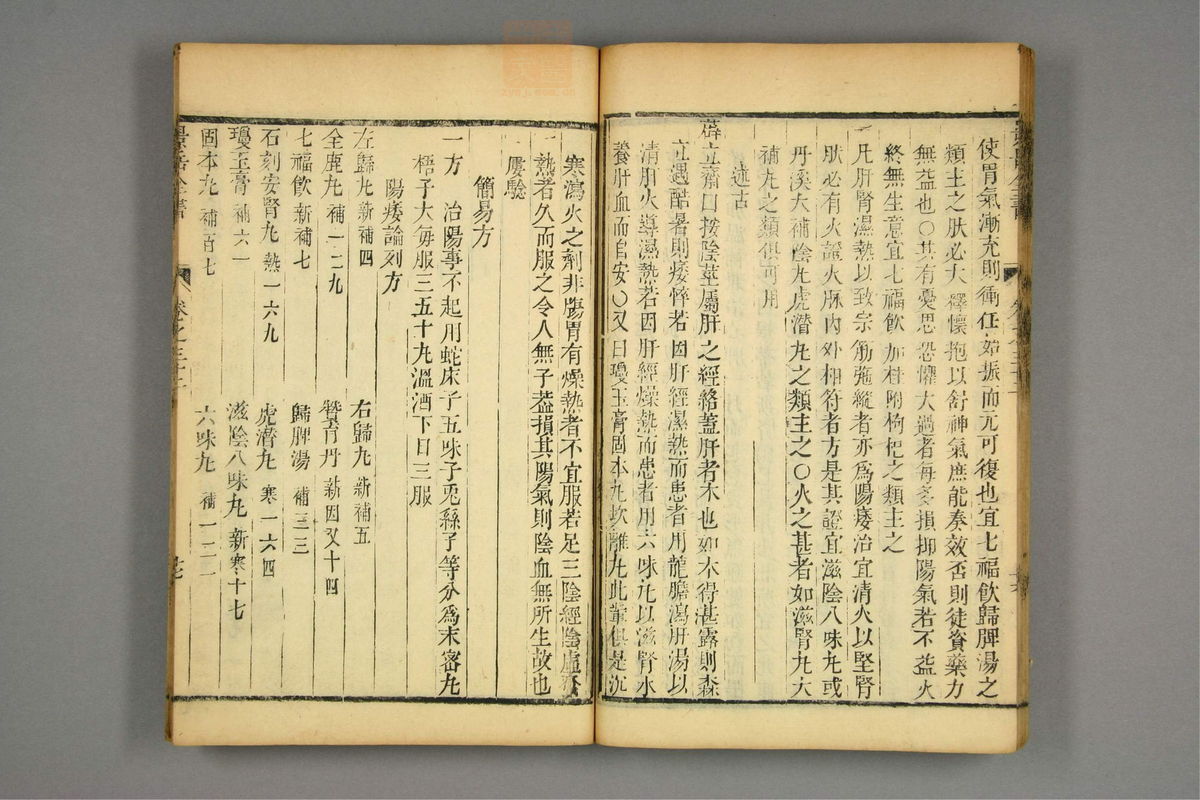 使胃氣漸充則衝任始振而元可復也宜七福飲歸脾湯之
類主之肰必大釋懷抱以舒神氣庶能奏效否則徒資藥力
無益也〇其有憂思恐懼大過者每多損抑陽氣若不益火
終無生意宜七福飲加桂附枸杞之類主之
一凡肝腎濕熱以致宗筋弛縱者亦爲陽痿治宜清火以堅腎
肰必有火證火脉內外相符者方是其證宜滋陰八味丸或
丹溪大補陰丸虎潛丸之類主之〇火之甚者如滋腎丸大
補丸之類俱可用
述古
薛立齋曰按陰莖屬肝之經絡蓋肝者木也如木得甚露則森
立遇酷暑則痿悴若因肝經濕熱而患者用龍膽瀉肝湯以
清肝火導濕熱若因肝經燥熱而患者用六味丸以滋腎水
養肝血而自安〇又曰瓊玉膏固本丸坎離丸此輩俱是沉
寒瀉火之劑非膓胃有燥熱者不宜服若足三陰經陰虛發
熱者久而服之令人無子葢損其陽氣則陰血無所生故也
屢驗
簡易方
一方 治陽事不起用蛇床子五味子兎絲子等分爲末宻丸
梧子大每服三五十丸溫酒下日三服
陽痿論列方
左歸丸 新補四 右歸丸 新補五
全鹿丸 補一二九 贊育丹 新因又十四
七福飲 新補七 歸脾湯 補三三
石刻安腎丸 熱一六九 虎潛丸 寒一六四
瓊玉膏 補六一 滋陰八味丸 新寒十七
固本丸 補百七 六味丸 補一二一
景岳全書 卷之三十二